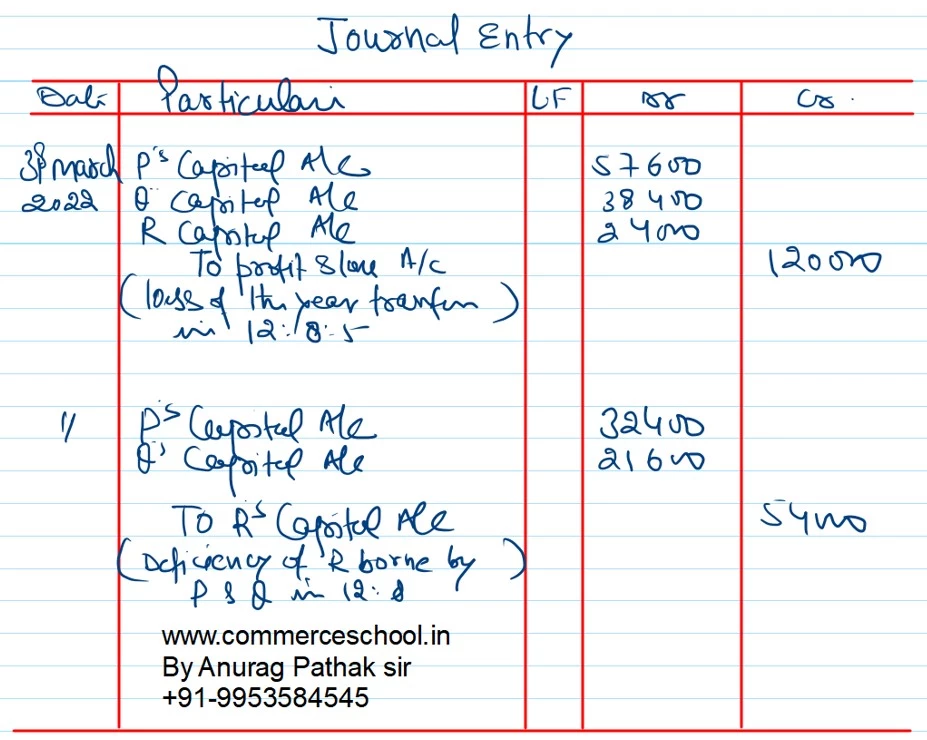 Journal Entry
Date Particulars LF Dr Cr.
31st March P's Capital A/c 57600
2022 Q' Capital A/c 38400
R Capital A/c 24000
To profit & loss A/c 120000
(loss of the year transfer)
in 12:8:5
" P's Capital A/c 32400
Q's Capital A/c 21600
To R's Capital A/c 54000
(Deficiency of R borne by)
P & Q in 12:8
www.commerceschool.in
By Anurag Pathak sir
+91-9953584545